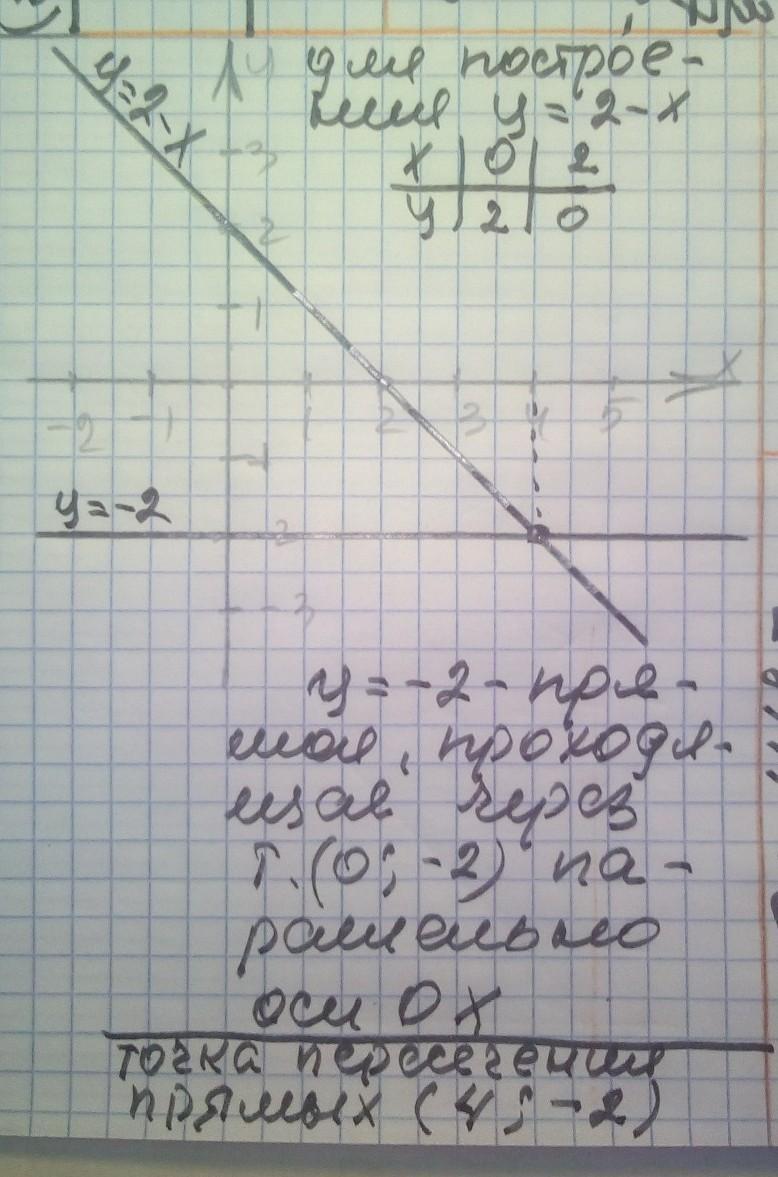 y=2-x
y
для построе-
ния y = 2-x
x | 0 | 2
y | 2 | 0
3
2
1
x
-2 -1 1 2 3 4 5
-1
y=-2
2
-3
y = -2 - пря-
мая, проходя-
щая через
т. (0; -2) па-
раллельно
оси OX
точка пересечения
прямых (4; -2)